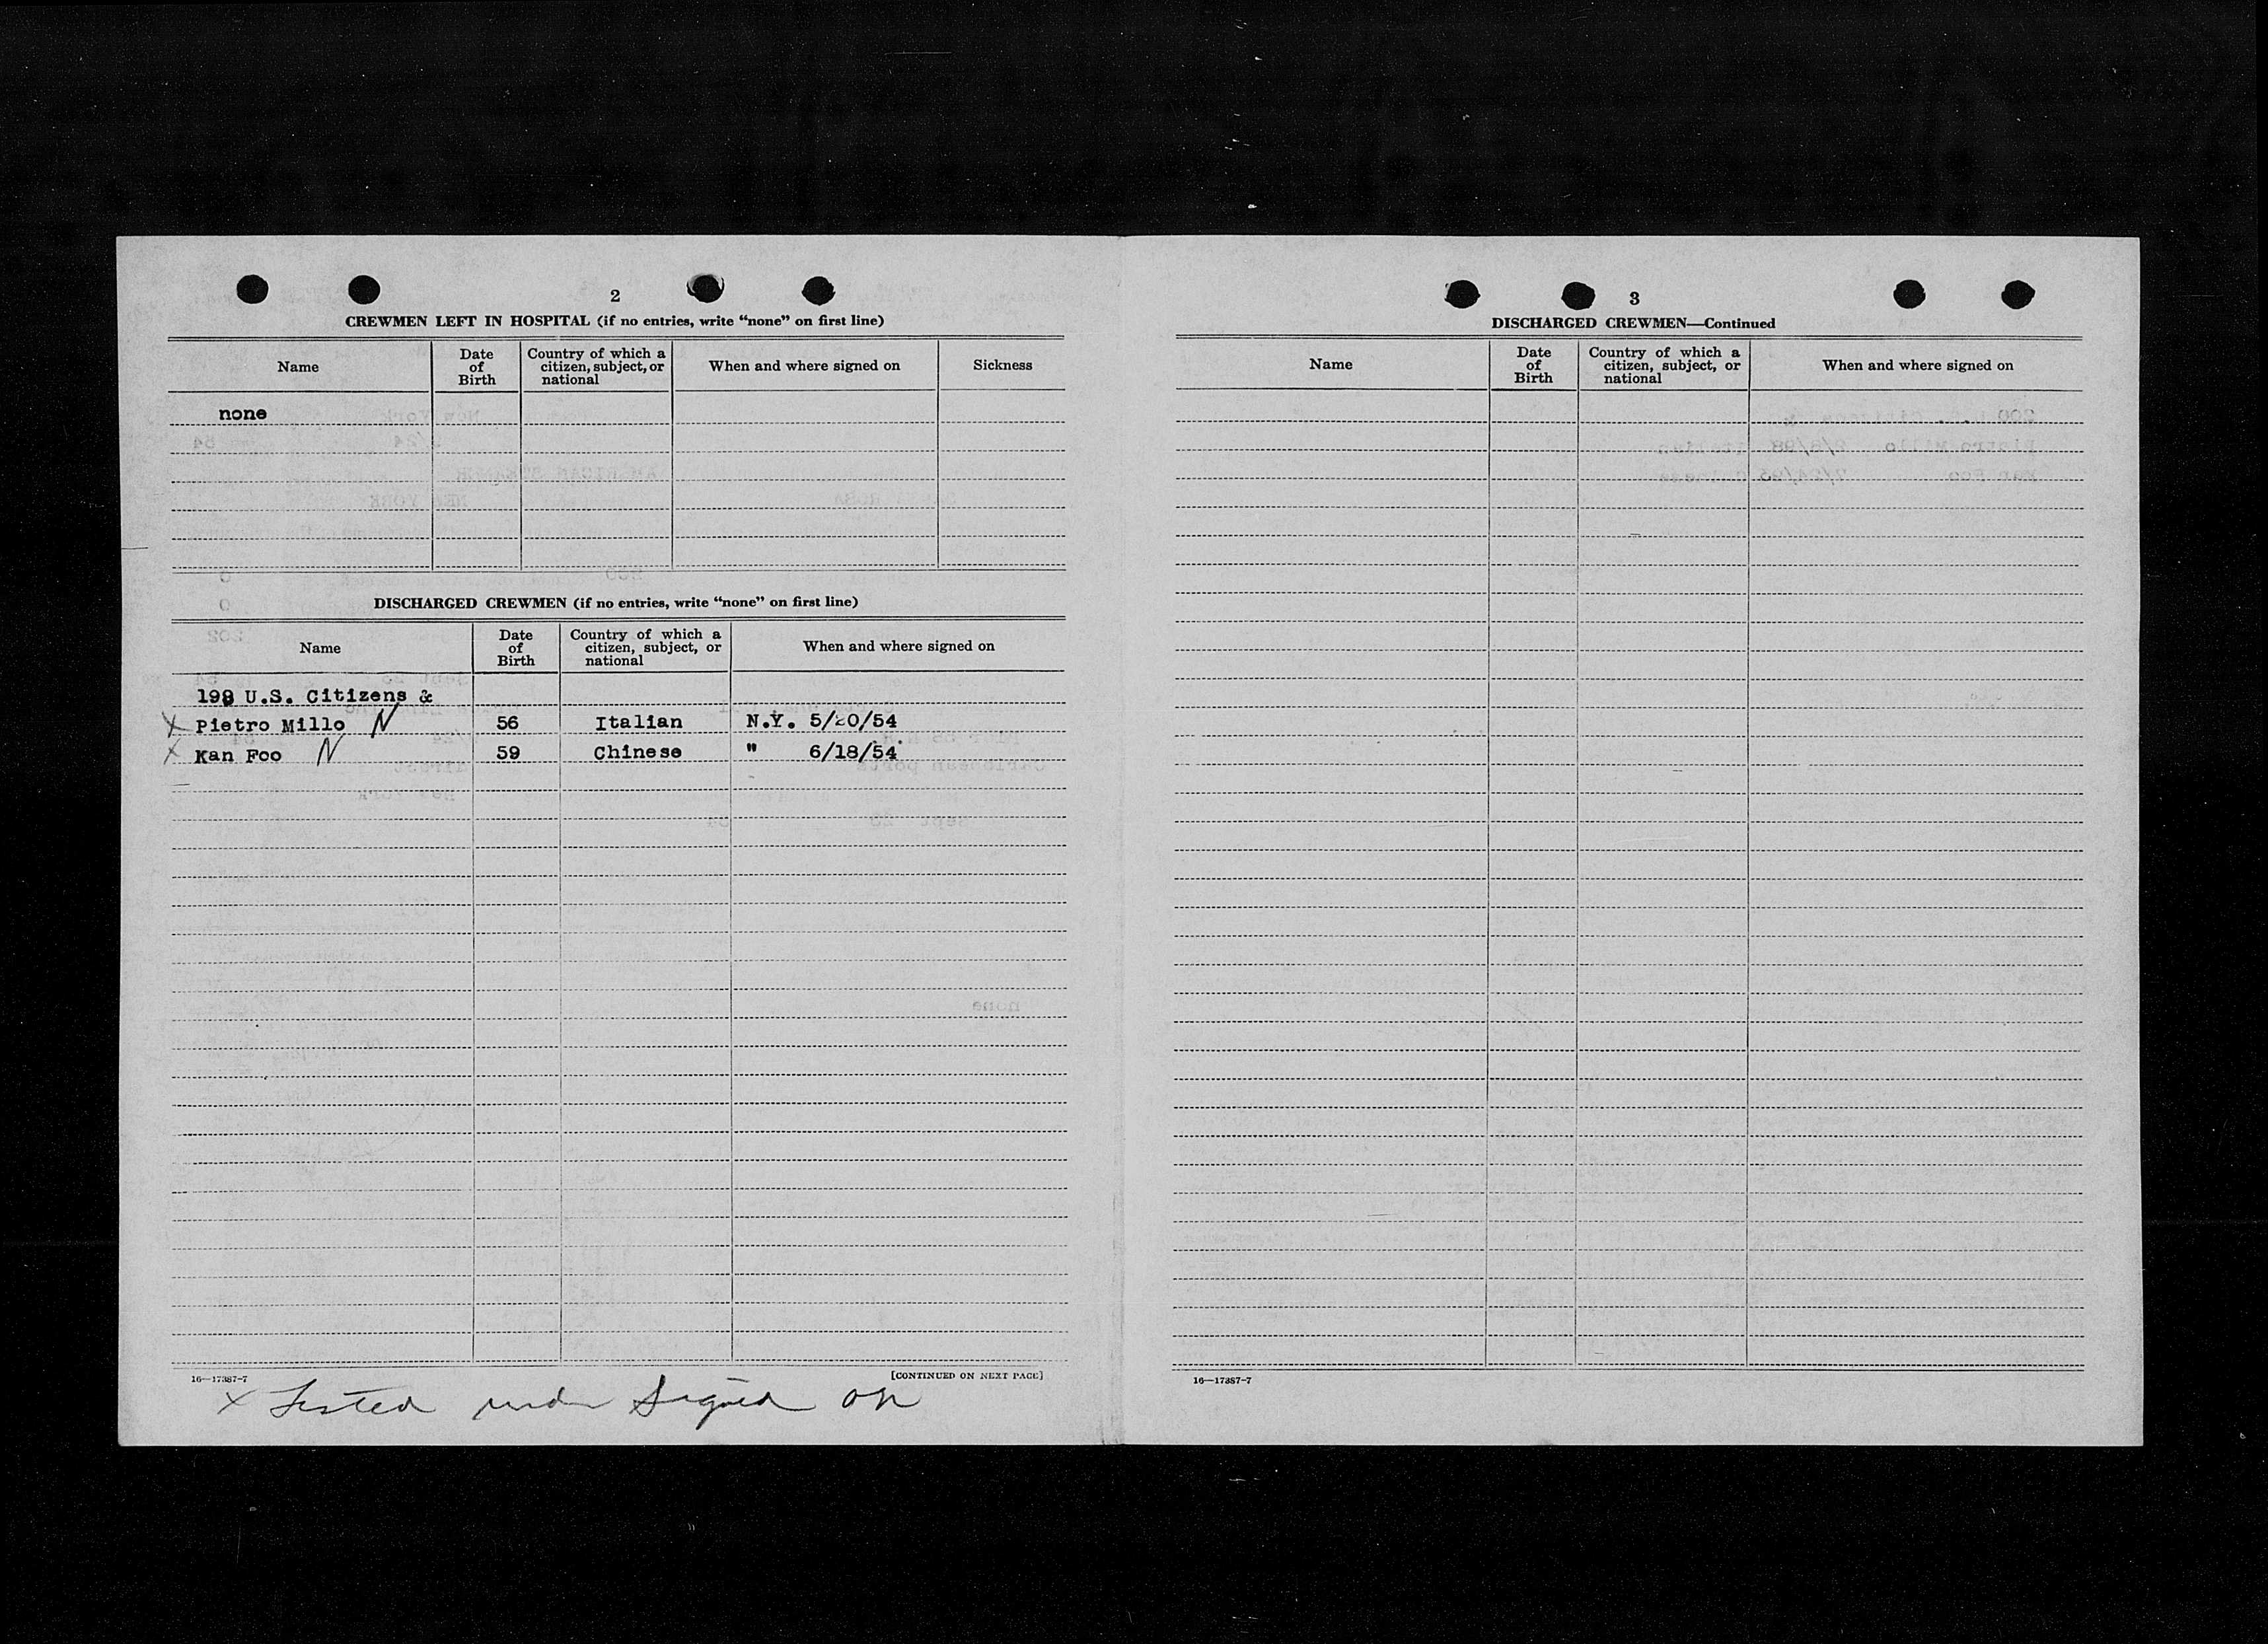 2
CREWMEN LEFT IN HOSPITAL (if no entries, write “none” on first line)
Name
Date of Birth
Country of which a citizen, subject, or national
When and where signed on
Sickness
none
DISCHARGED CREWMEN (if no entries, write “none” on first line)
Name
Date of Birth
Country of which a citizen, subject, or national
When and where signed on
198 U.S. Citizens &
X Pietro Millo N 56 Italian N.Y. 5/20/54
X Kan Foo N 59 Chinese " 6/18/54
16—17387-7
[CONTINUED ON NEXT PAGE]
x Listed under Signed on
3
DISCHARGED CREWMEN—Continued
Name
Date of Birth
Country of which a citizen, subject, or national
When and where signed on
16—17387-7